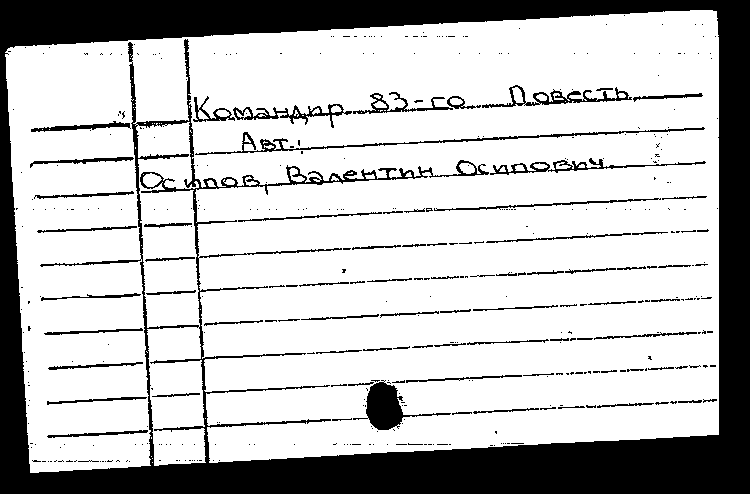 Командир 83-го Повесть
Авт.:
Осипов, Валентин Осипович.